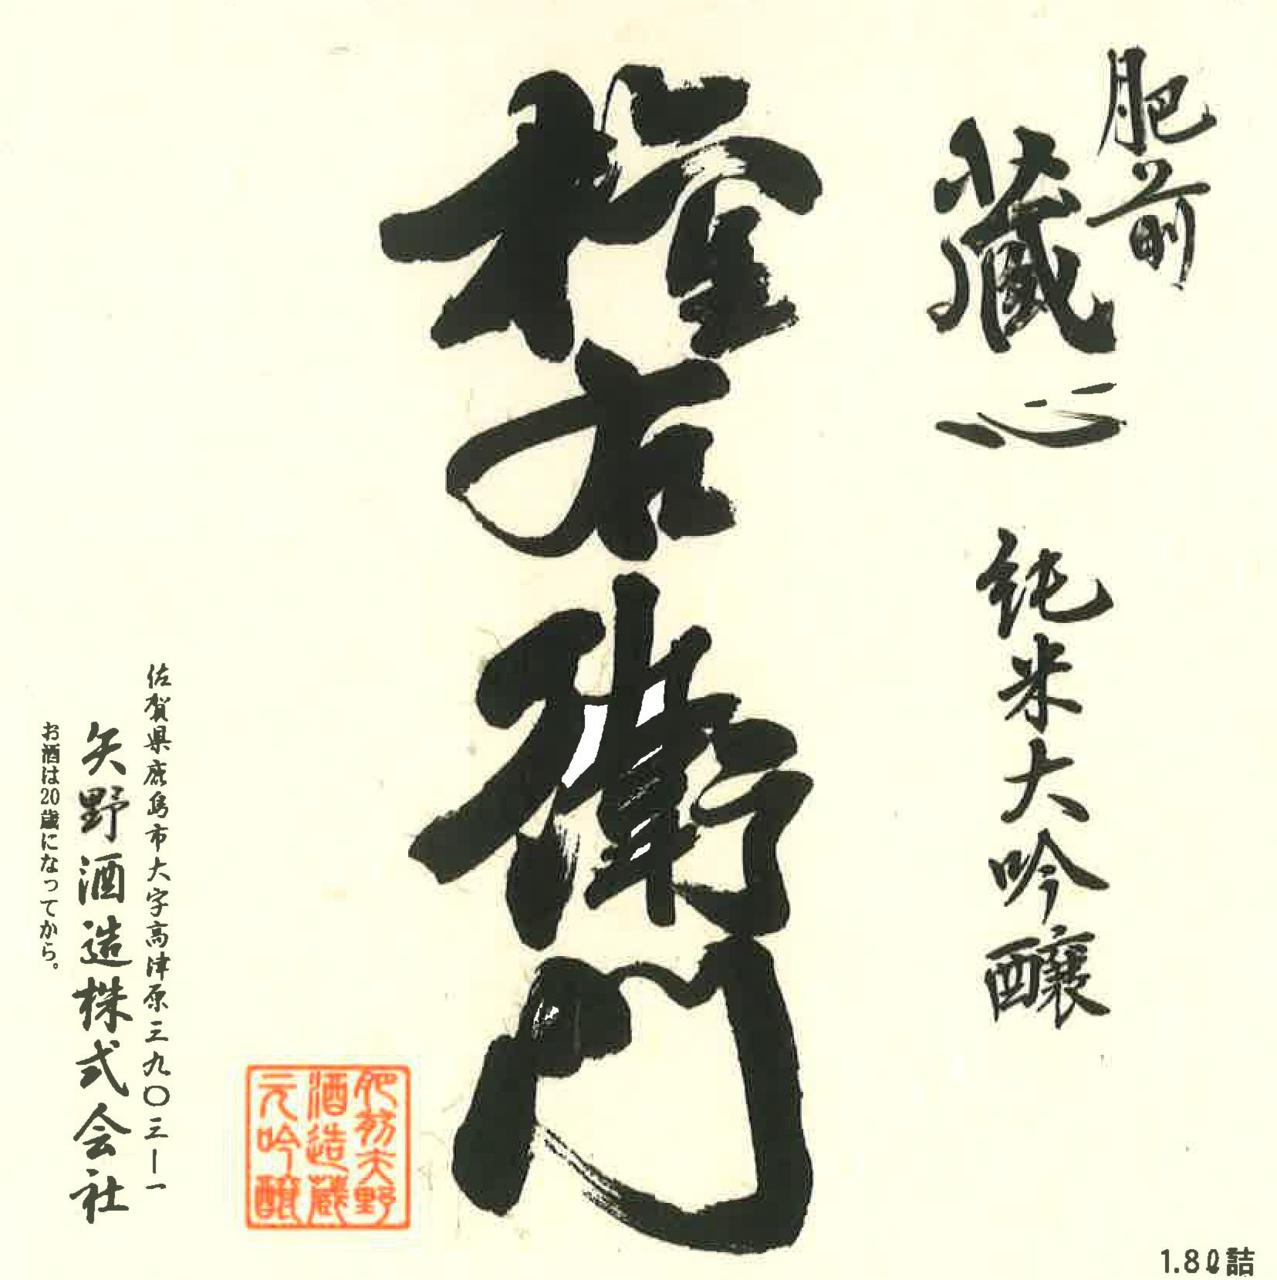 肥前
蔵心
純米大吟醸
権右衛門
肥前矢野
酒造蔵
元吟醸
佐賀県鹿島市大字高津原三九〇三ー一
矢野酒造株式会社
お酒は20歳になってから。
1.8ℓ詰